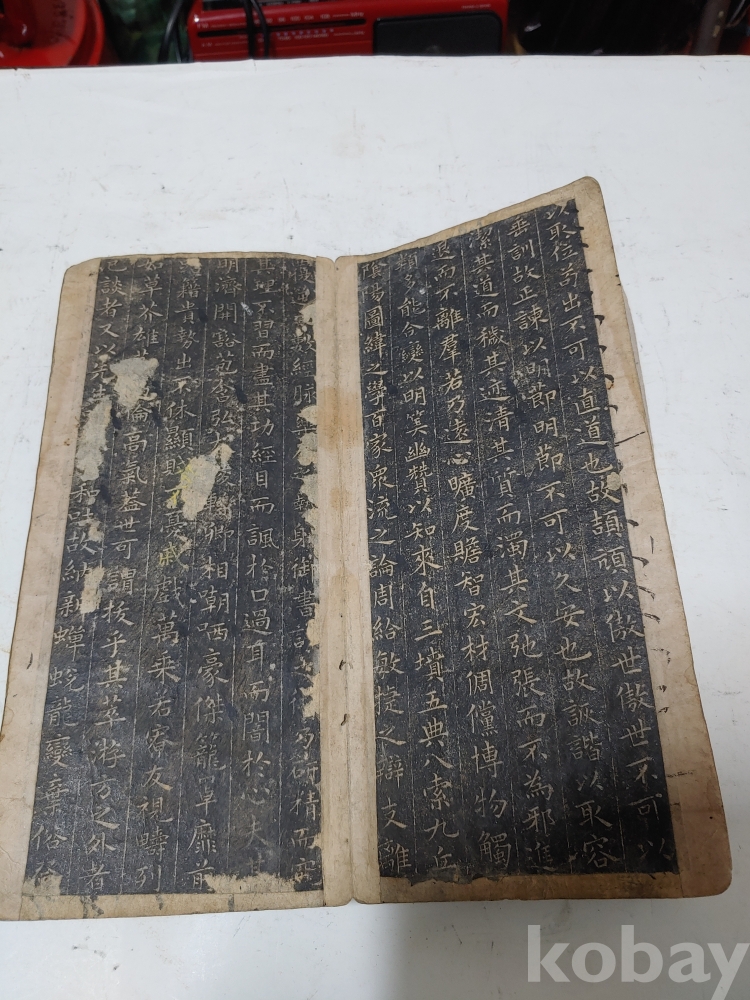 以取位苟出不可以直道也故頡頏以傲世傲世不可以
垂訓故正諫以明節明節不可以久安也故詼諧以取容
潔其道而穢其迹清其質而濁其文弛張而不為邪進
退而不離羣若乃遠心曠度贍智宏材倜儻博物觸
類多能合變以明筭幽贊以知來自三墳五典八索九丘
陰陽圖緯之學百家眾流之論周給敏捷之辯支離
數經脉 射御書計 研精而究
其理不習而盡其功經目而諷於口過耳而闇於心夫其
明濟開豁苞含弘大 轢卿相嘲哂豪傑籠罩靡前
籍貴勢出不休顯賤不憂戚戲萬乘若寮友視疇列
如草芥雄 倫高氣蓋世可謂拔乎其萃游方之外者
已談者又以先生 和吐故納新蟬蛻龍變棄俗
kobay